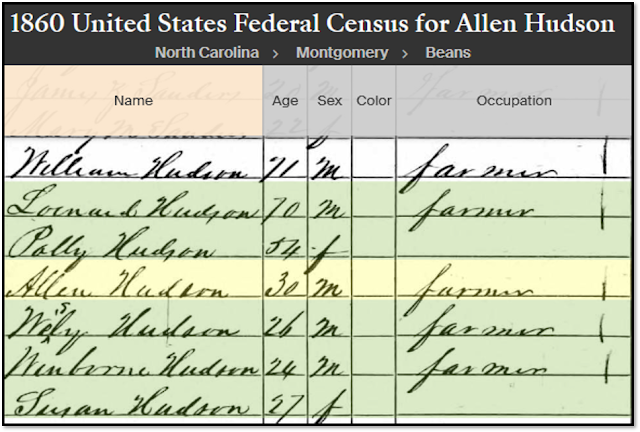 1860 United States Federal Census for Allen Hudson
North Carolina > Montgomery > Beans
Name Age Sex Color Occupation
James Sanders
Mary M Sanders 22 f
William Hudson 71 m farmer
Loenard Hudson 70 m farmer
Polly Hudson 54 f
Allen Hudson 30 m farmer
Wesly Hudson 26 m farmer
Winborne Hudson 24 m farmer
Susan Hudson 27 f